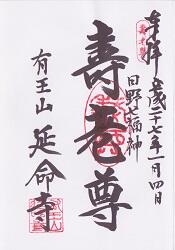 奉拝
平成二十七年一月四日
日野七福神
壽老尊
有王山
延命寺